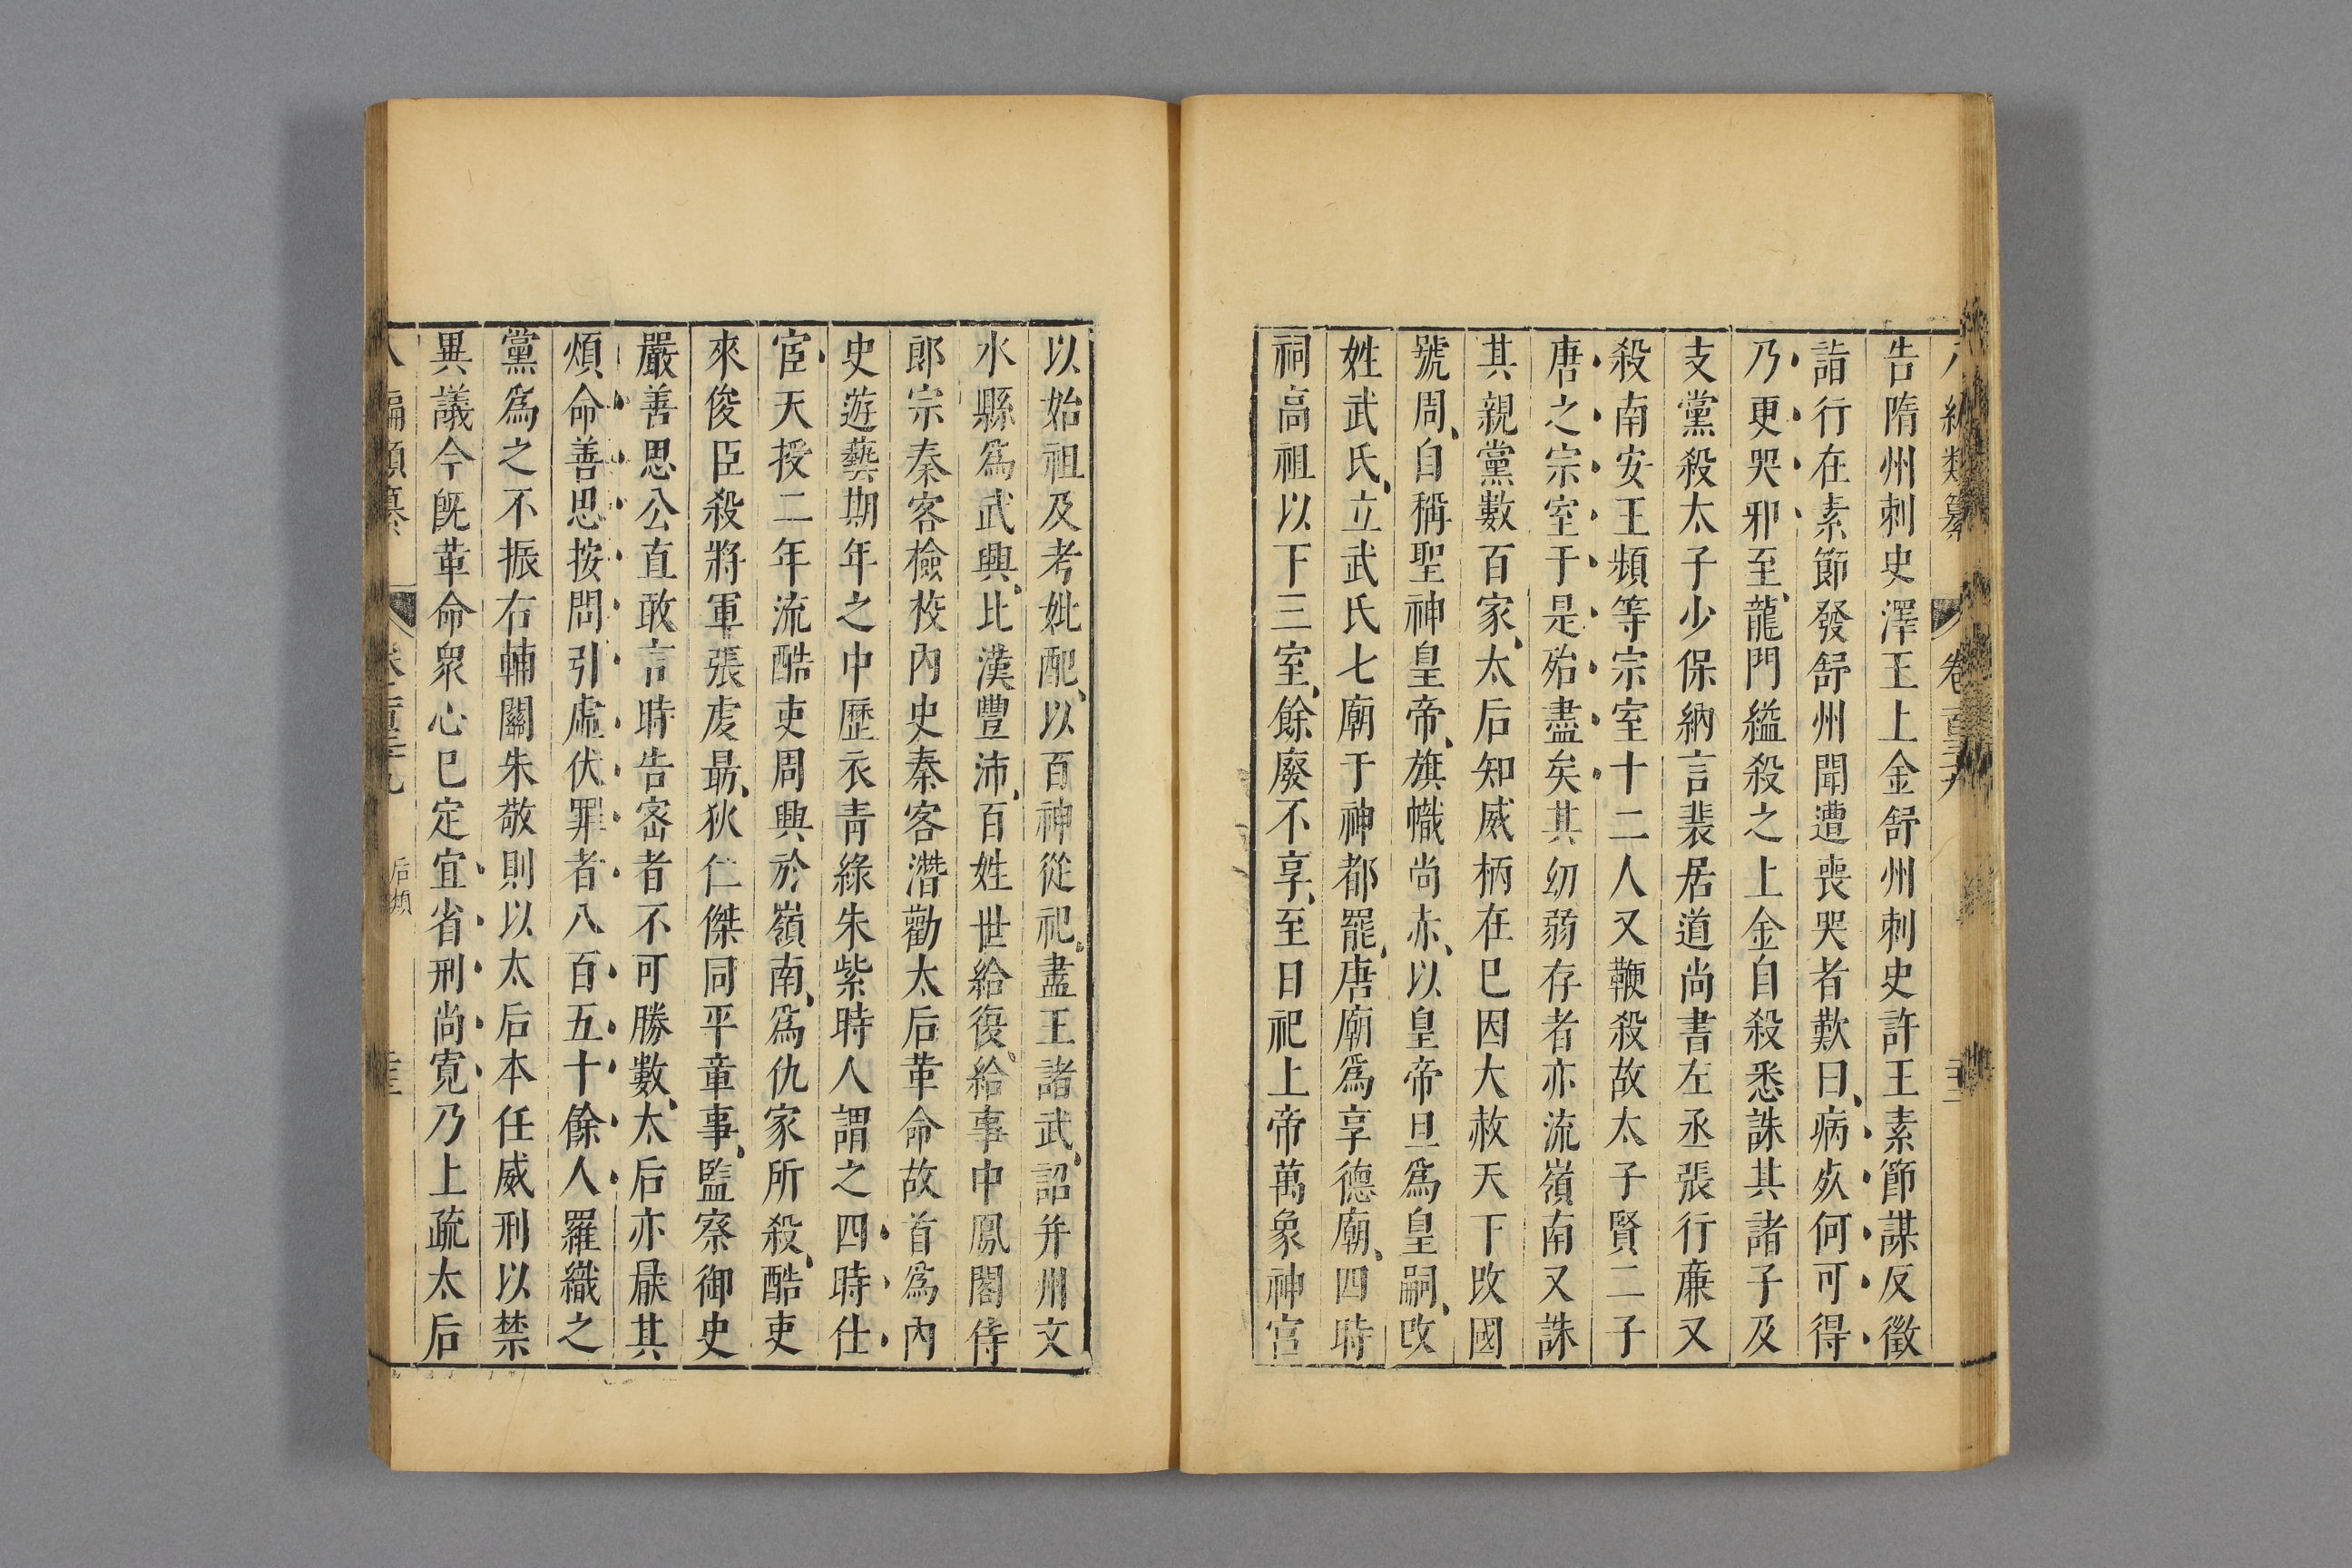 告隋州刺史澤王上金舒州刺史許王素節謀反徵
詣行在素節發舒州聞遭喪哭者歎曰、病死何可得
乃更哭邪至、龍門縊殺之上金自殺悉誅其諸子及
支黨殺太子少保納言裴居道尚書左丞張行廉又
殺南安王頻等宗室十二人又鞭殺故太子賢二子
唐之宗室于是殆盡矣其幼弱存者亦流嶺南又誅
其親黨數百家、太后知威柄在已因大赦天下改國
號周、自稱聖神皇帝、旗幟尚赤、以皇帝旦爲皇嗣、改
姓武氏、立武氏七廟于神都罷、唐廟爲享德廟、四時
祠高祖以下三室、餘廢不享、至日祀上帝萬象神宮
以始祖及考妣配、以百神從祀、盡王諸武、詔并州文
水縣爲武興、比漢豐沛、百姓世給復、給事中鳳閣侍
郎宗秦客檢校內史秦客潛勸太后革命故首爲內
史遊藝期年之中歷衣青綠朱紫時人謂之四時仕
宦、天授二年流酷吏周興於嶺南、爲仇家所殺、酷吏
來俊臣殺將軍張虔最、狄仁傑同平章事、監察御史
嚴善思公直敢言時告密者不可勝數、太后亦厭其
煩、命善思按問引虛伏罪者八百五十餘人羅織之
黨爲之不振右輔闕朱敬則以太后本任威刑以禁
異議今旣革命衆心已定宜省刑尚寬乃上疏太后
編類纂 卷百三十九 后類